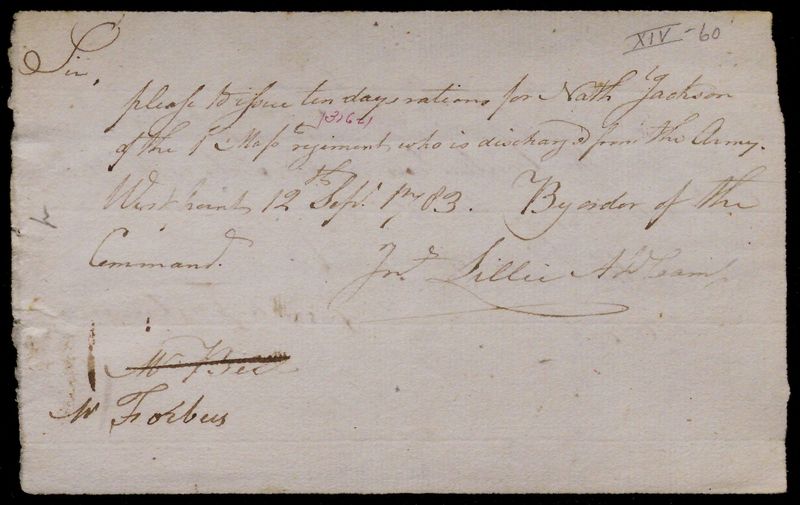 XIV-60
Sir,
please to issue ten days rations for Nath Jackson
13164
of the 1st Mass regiment who is discharg'd from the Army.
West point 12th Sept 1783. By order of the
Command.t
Jno Lillie ADCamp
Mr
Mr Forbus